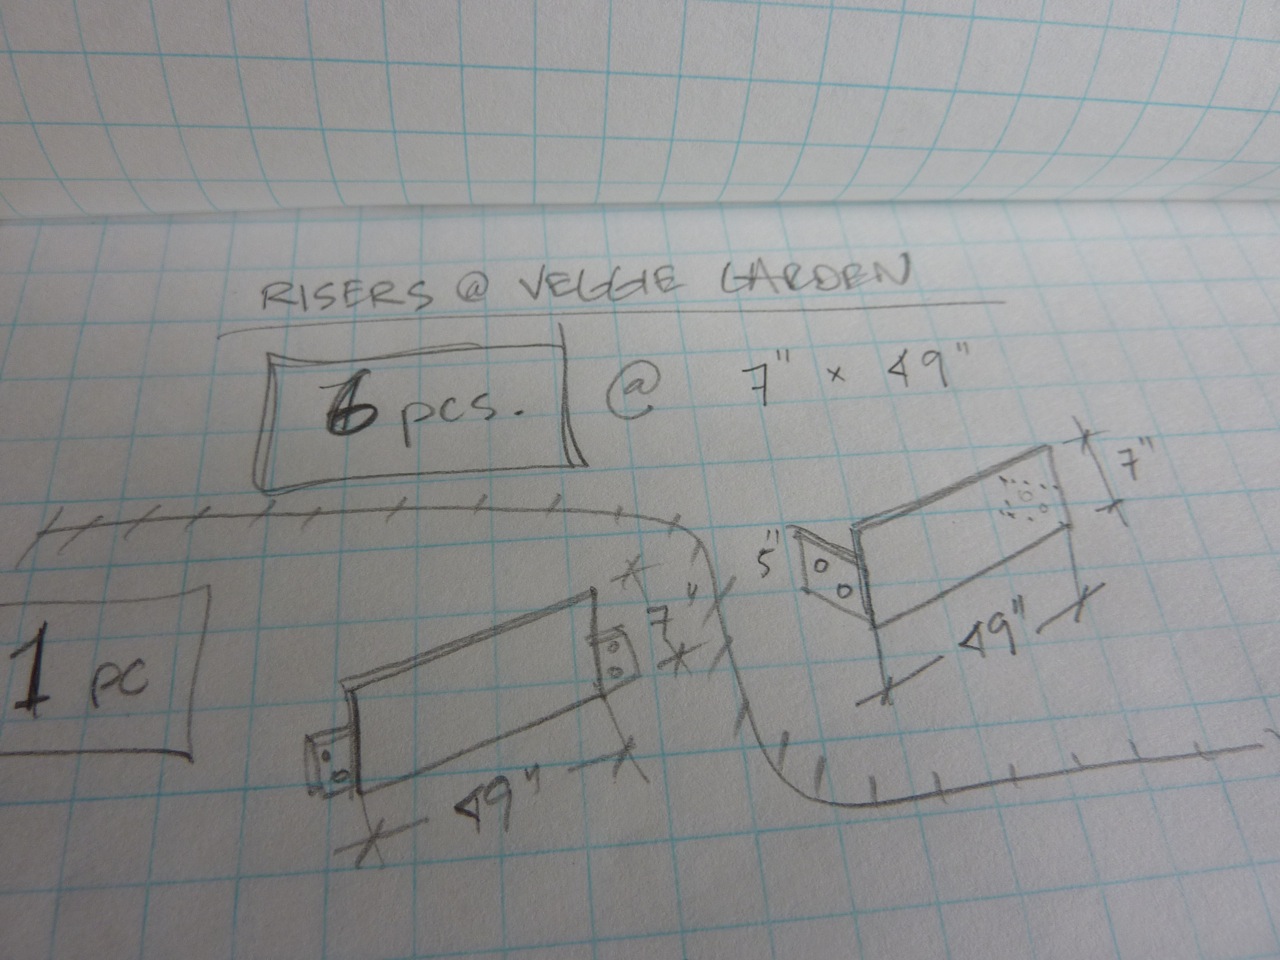 RISERS @ VEGGIE GARDEN
6 pcs. @ 7" x 49"
7"
5"
49"
1 pc
7"
49"